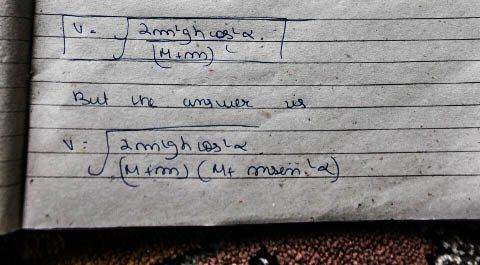 V = √(2m²gh cos²α / (M+m)²)
But the answer is
V = √(2m²gh cos²α / (M+m) (M+ msin²α))